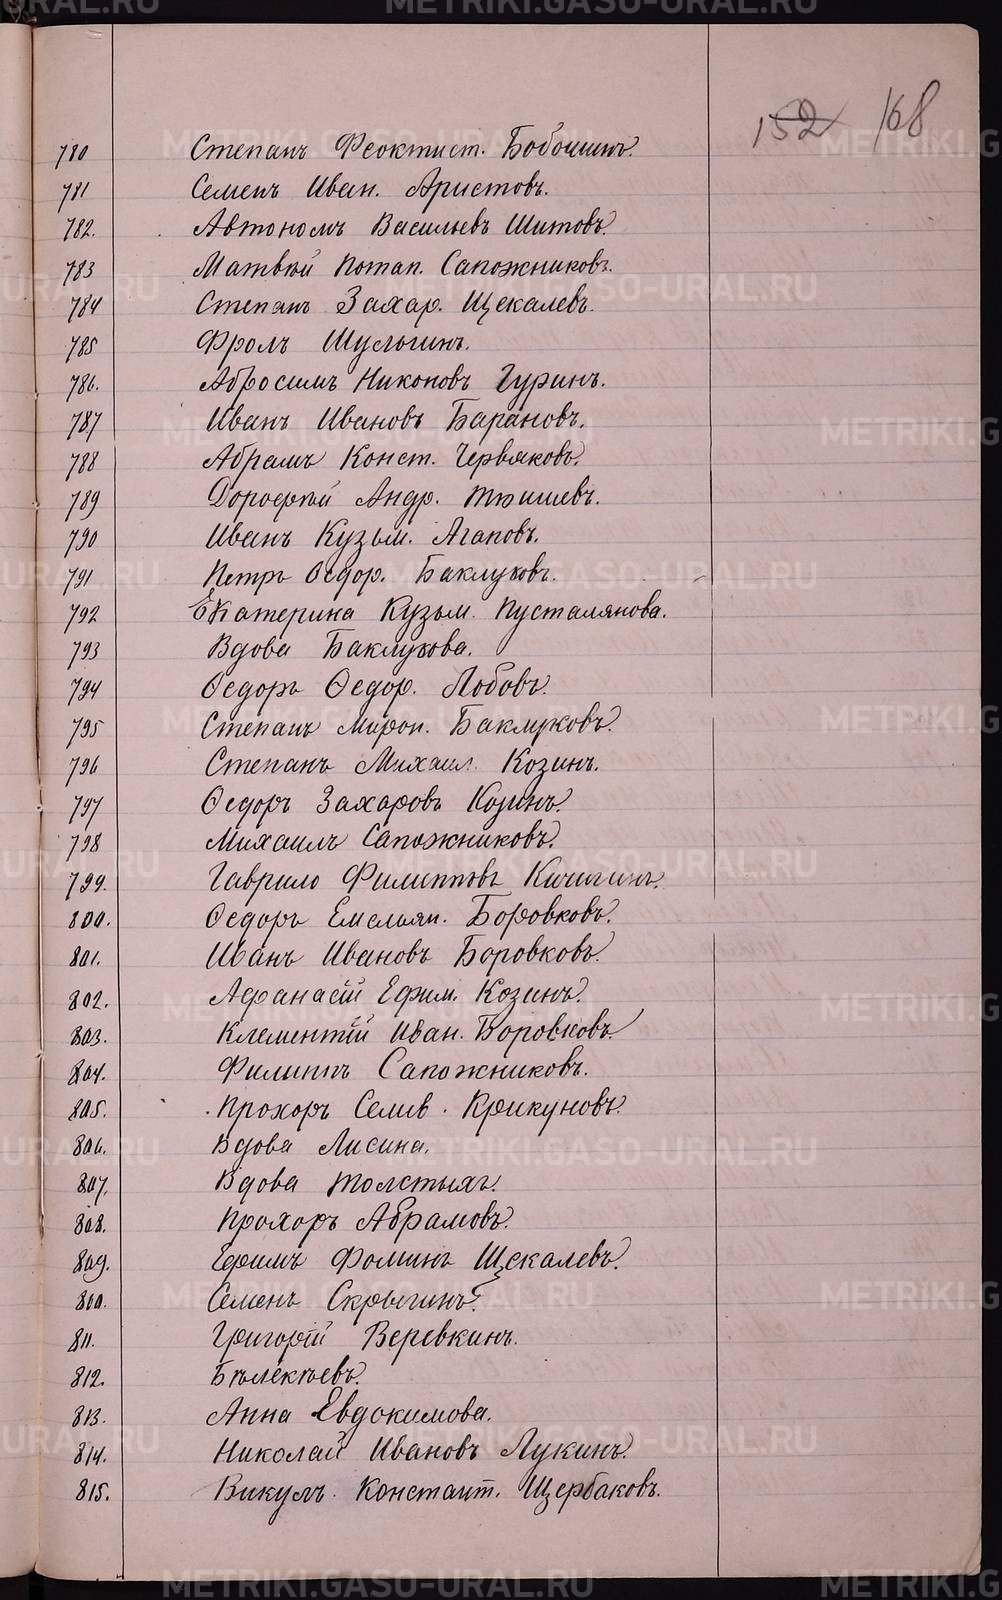 152 168
780 Степанъ Феоктист. Бобошинъ.
781 Семенъ Иван. Аристовъ.
782. Автономъ Васильевъ Шитовъ.
783 Матвѣй Потап. Сапожниковъ.
784 Степанъ Захар. Щекалевъ.
785 Фролъ Шулыгинъ.
786. Абросимъ Никоновъ Гуринъ.
787 Иванъ Ивановъ Барановъ.
788 Абрамъ Конст. Червяковъ.
789 Дорофѣй Андр. Тюшевъ.
790 Иванъ Кузьм. Агаповъ.
791 Петръ Ѳедор. Баклуховъ.
792 Екатерина Кузьм. Пусталякова.
793 Вдова Баклухова.
794 Ѳедоръ Ѳедор. Лобовъ.
795 Степанъ Мирон. Баклуховъ.
796 Степанъ Михаил. Козинъ.
797 Ѳедоръ Захаровъ Козинъ.
798 Михаилъ Сапожниковъ.
799. Гаврило Филипповъ Кичигинъ.
800. Ѳедоръ Емельян. Боровковъ.
801. Иванъ Ивановъ Боровковъ.
802. Афанасій Ефим. Козинъ.
803. Клементій Иван. Боровковъ.
804. Филиппъ Сапожниковъ.
805. Прохоръ Селив. Крикуновъ.
806. Вдова Лисина.
807. Вдова Толстыхъ.
808. Прохоръ Абрамовъ.
809. Ефимъ Фоминъ Щекалевъ.
800. Семенъ Скрыгинъ.
811. Григорій Веревкинъ.
812. Бѣлекѣевъ.
813. Анна Евдокимова.
814. Николай Ивановъ Лукинъ.
815. Викулъ Констант. Щербаковъ.
METRIKI.GASO-URAL.RU